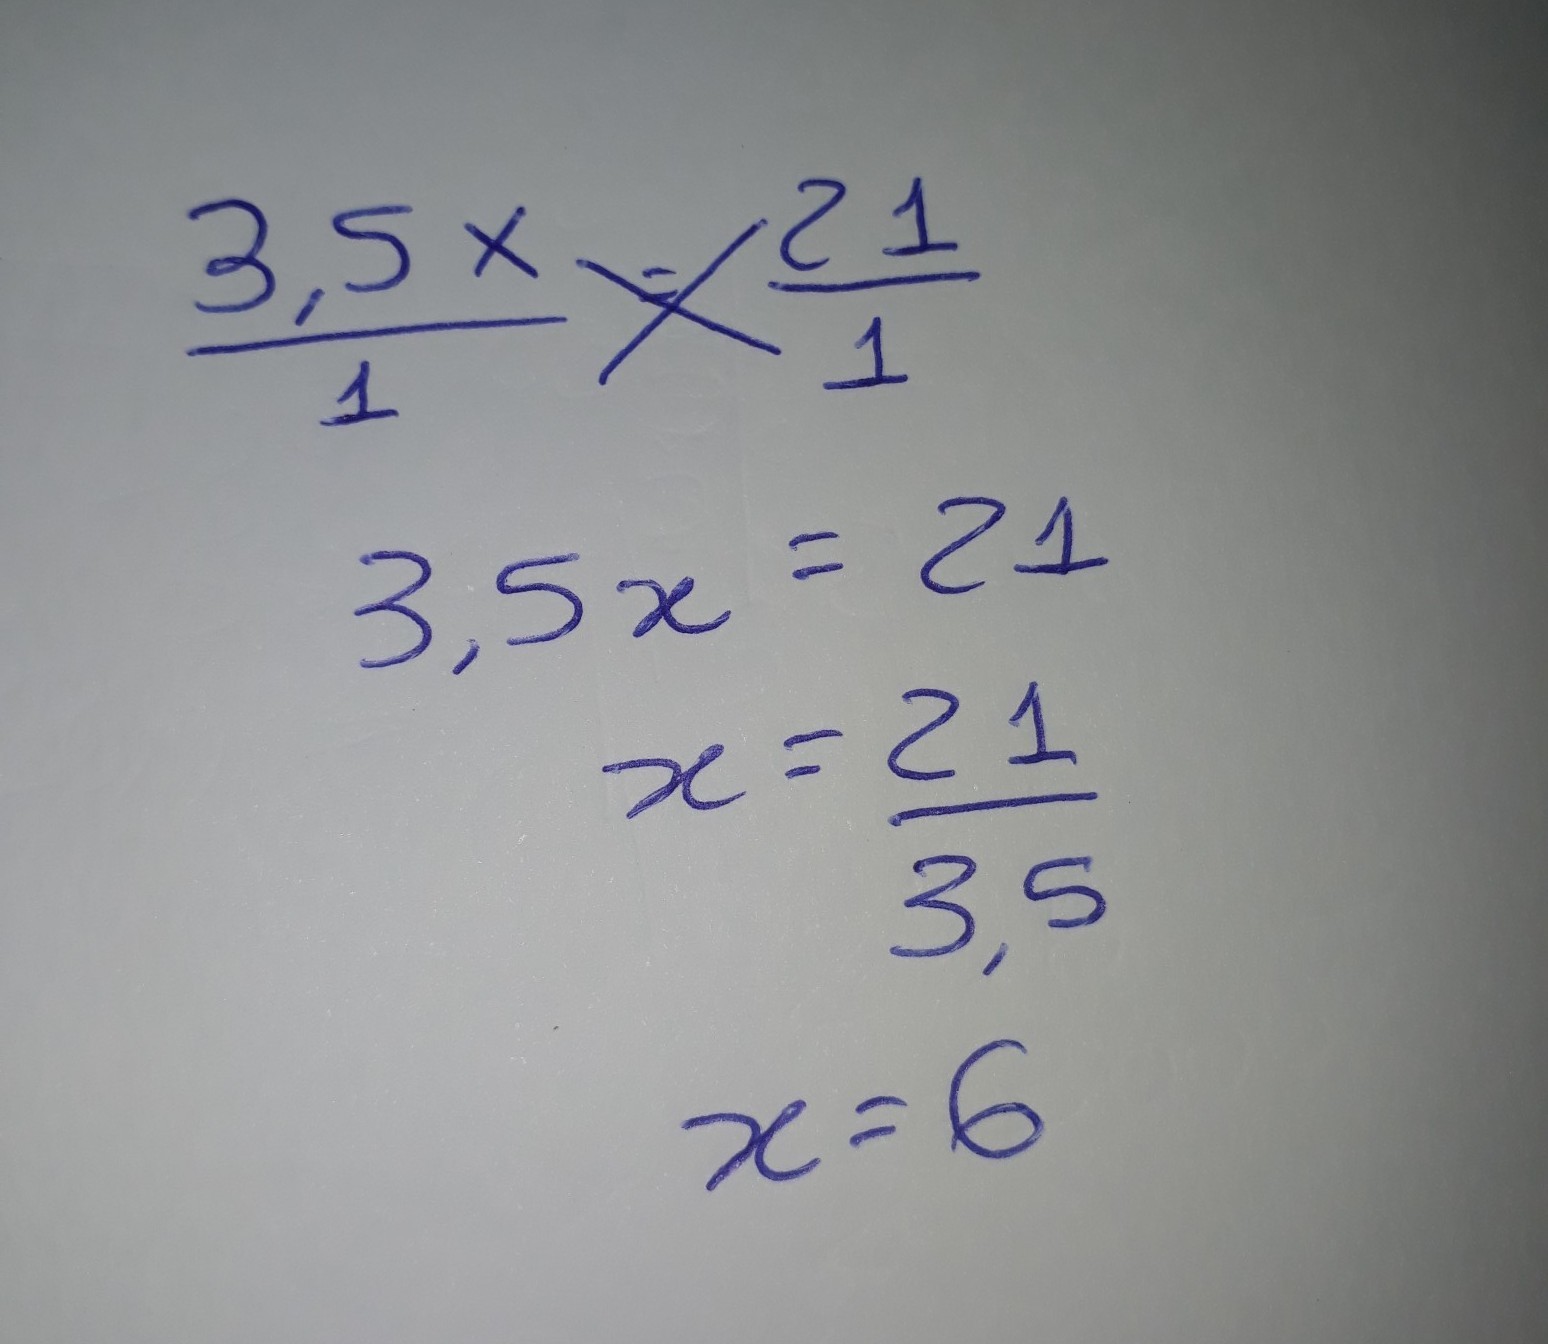 3,5x/1 = 21/1
3,5x = 21
x = 21/3,5
x = 6